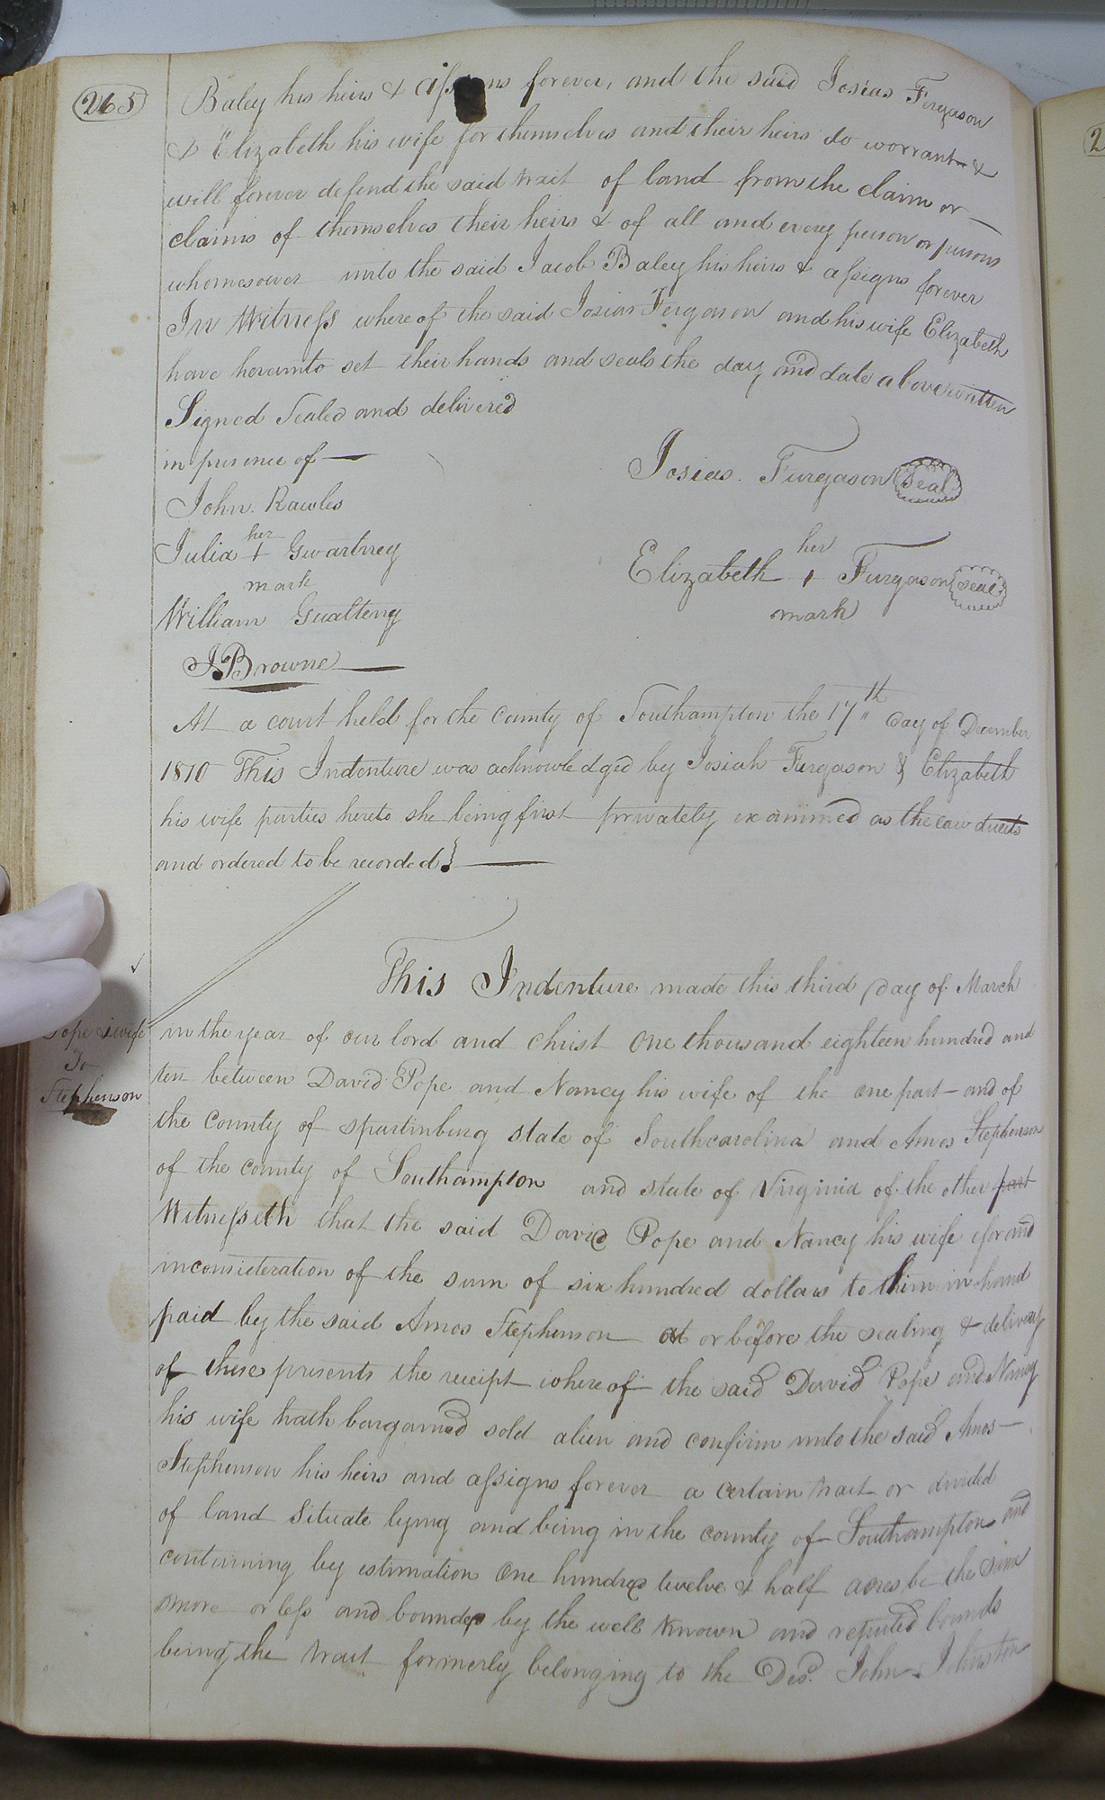 265
Baley his heirs & assigns forever, and the said Josias Fergason
& Elizabeth his wife for themselves and their heirs do worrant &
will forever defend the said tract of land from the claim or
claims of themselves their heirs & of all and every person or persons
whomesover unto the said Jacob Baley his heirs & assigns forever
In Witness whereof the said Josias Fergason and his wife Elizabeth
have hereunto set their hands and seals the day and date above written
Signed Sealed and delivered
in presence of
John Rawles
her
Julia + Gwartney
mark
William Gualteny
J Browne
Josias Furgason Seal
her
Elizabeth + Furgason Seal
mark
At a court held for the County of Southampton the 17th day of December
1810 This Indenture was acknowledged by Josiah Furgason & Elizabeth
his wife parties hereto she being first privately examined as the law directs
and ordered to be recorded
Pope & wife
To
Stephenson
This Indenture made this third day of March
in the year of our lord and christ One thousand eighteen hundred and
ten between David Pope and Nancy his wife of the one part - and of
the County of Spartinburg State of Southcarolina and Amos Stephenson
of the county of Southampton and state of Virginia of the other part
Witnesseth that the said David Pope and Nancy his wife for and
inconsideration of the sum of six hundred dollars to them in hand
paid by the said Amos Stephenson at or before the sealing & delivery
of these presents the receipt whereof the said David Pope and Nancy
his wife hath bargained sold alien and confirm unto the said Amos
Stephenson his heirs and assigns forever a certain tract or divided
of land Situate lying and being in the county of Southampton and
containing by estimation One hundred twelve & half acres be the same
more or less and bounded by the well known and reputed bounds
being the tract formerly belonging to the Decd. John Johnston